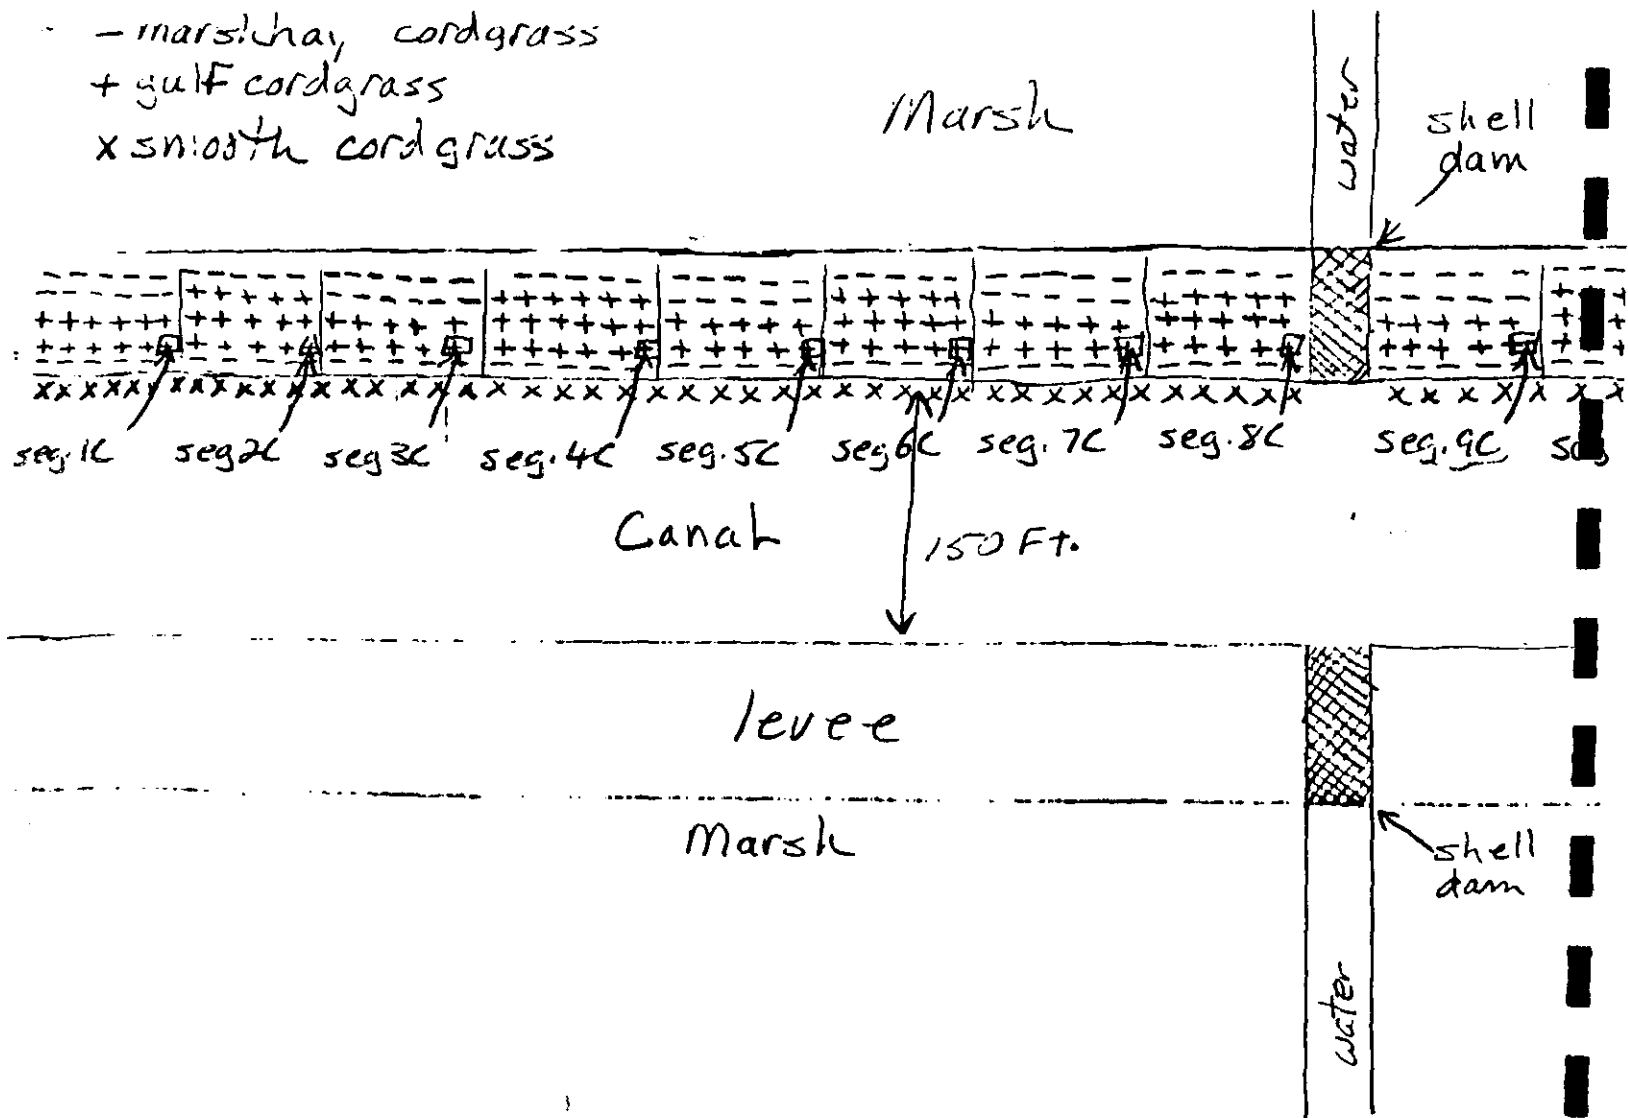 - marshhay cordgrass
+ gulf cordgrass
x smooth cordgrass
Marsh
water
shell
dam
seg. 1C seg 2C seg 3C seg. 4C seg. 5C seg 6C seg. 7C seg. 8C seg. 9C
Canal
150 Ft.
levee
Marsh
shell
dam
water